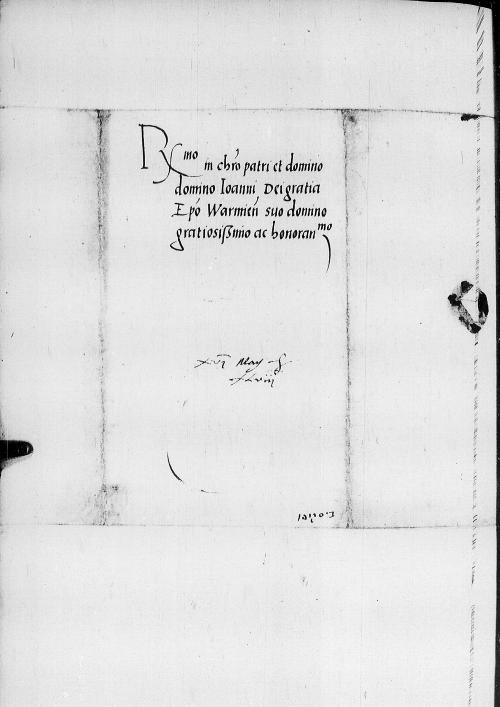 R mo in chro patri et domino
domino Ioanni Dei gratia
Epo Warmien suo domino
gratiosissimo ac honoran mo
May